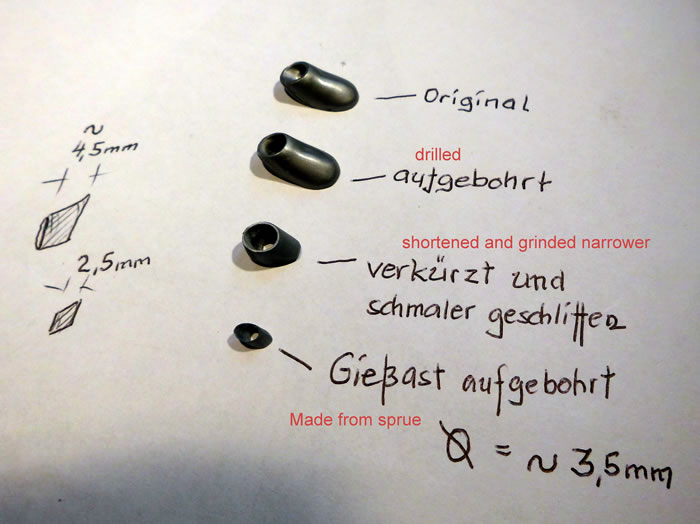 Original
~
4,5mm
drilled
aufgebohrt
shortened and grinded narrower
2,5mm
verkürzt und
schmaler geschliffen
Gießast aufgebohrt
Made from sprue
Ø = ~ 3,5mm